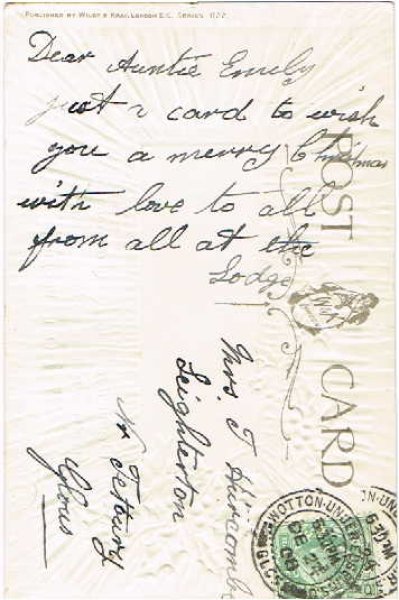 PUBLISHED BY WILDT & KRAY, LONDON E.C. SERIES
Dear Auntie Emily
just a card to wish
you a merry Christmas
with love to all
from all at the
Lodge
POST CARD
Mrs T
Leighterton
Nr Tetbury
Glous
WOTTON-UNDER-EDGE